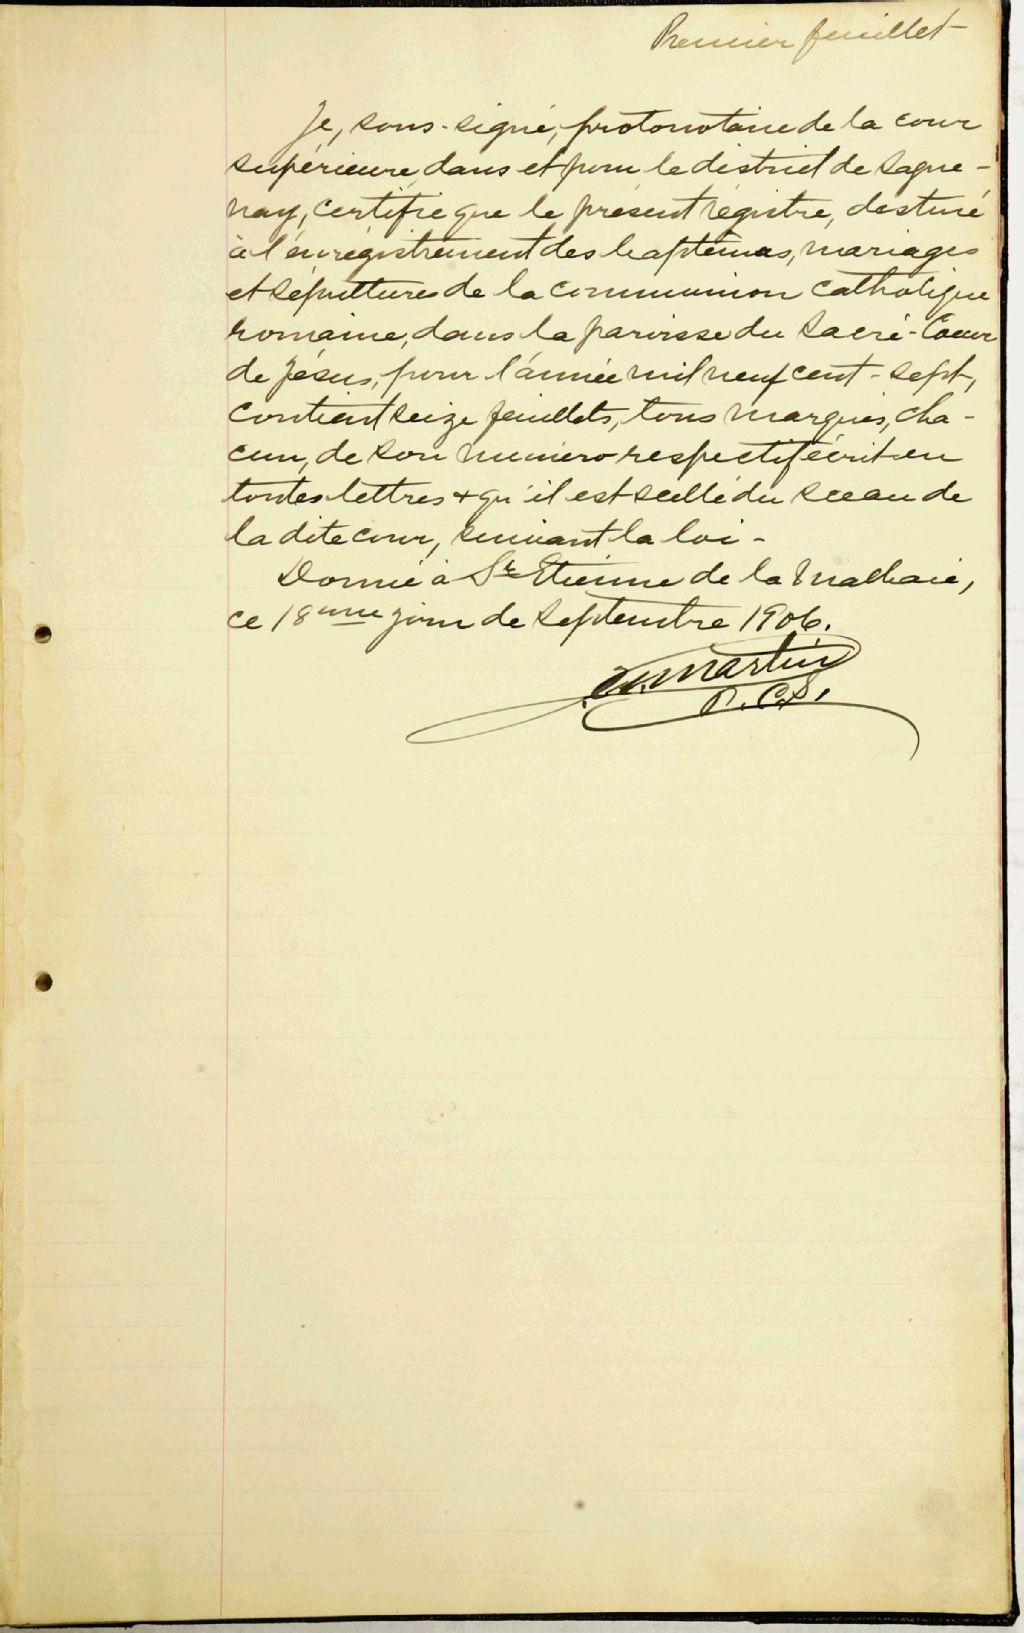 Premier feuillet
Je, sous-signé, protonotaire de la cour
supérieure, dans et pour le district de Sague-
nay, certifie que le présent régistre, destiné
à l'enrégistrement des baptêmes, mariages
et sépultures de la communion catholique
romaine, dans la paroisse du Sacré-Coeur
de Jésus, pour l'année mil neuf cent-sept,
contient seize feuillets, tous marqués, cha-
cun, de son numéro respectif écrit en
toutes lettres + qu'il est scellé du sceau de
la dite cour, suivant la loi -
Donné à St Etienne de la Malbaie,
ce 18ème jour de Septembre 1906.
Martin
P.C.S.